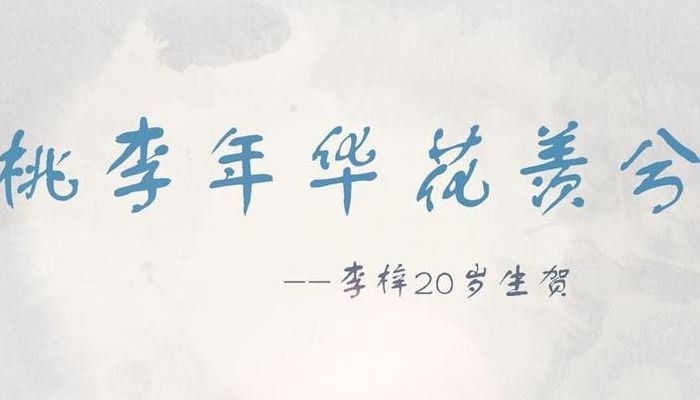 桃李年华花羡兮
——李梓20岁生贺